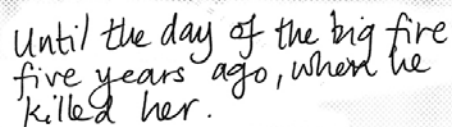 Until the day of the big fire
five years ago, when he
killed her.